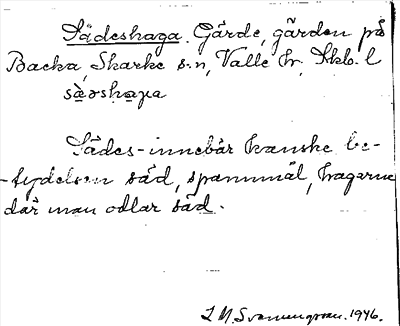 Sädeshaga. Gärde, gården på
Backa, Skarke s:n, Valle hr, Skb. l
sä̀əshaga
Sädes- innebär kanske be-
tydelsen säd, spannmål, hagarna
där man odlar säd.
1946.